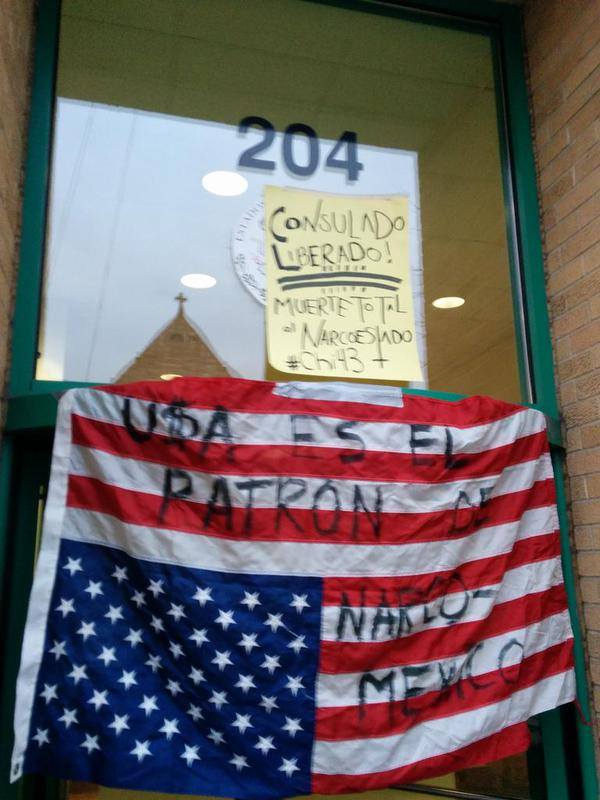 204
CONSULADO
LIBERADO!
MUERTE TOTAL
al NARCOESTADO
#Chi43 +
U$A ES EL
PATRON DE
NARCO-
MEXICO